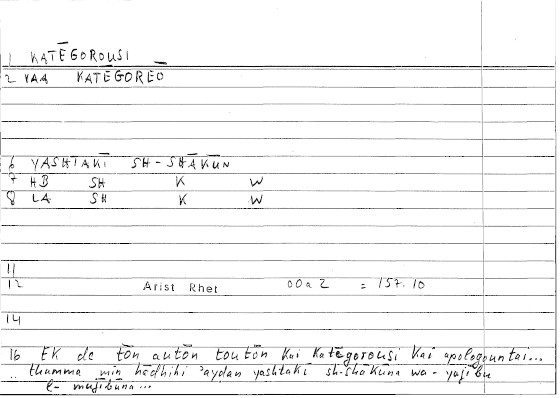 1 KATĒGOROUSI
2 VAA KATĒGOREŌ
6 YASHTAKĪ SH-SHĀKŪN
7 HB SH K W
8 LA SH K W
11
12 Arist Rhet 00a2 = 157.10
14
16 Ek de tōn autōn toutōn kai katēgorousi kai apologountai...
thumma min hādhihi 'aydan yashtakī sh-shākūna wa-yujību
l-mujībūna...